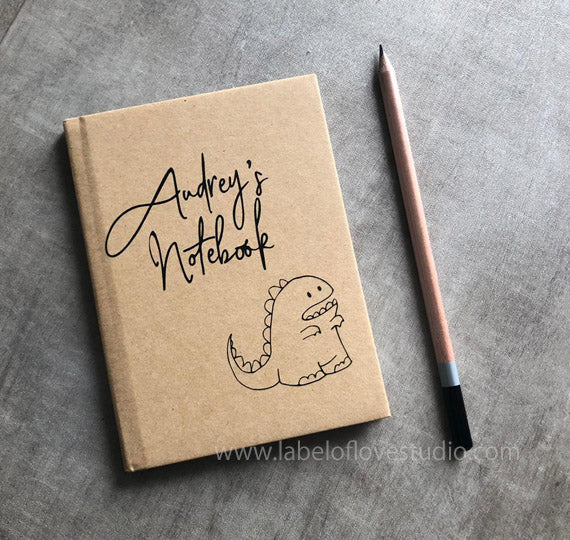 Audrey's
Notebook
www.labeloflovestudio.com